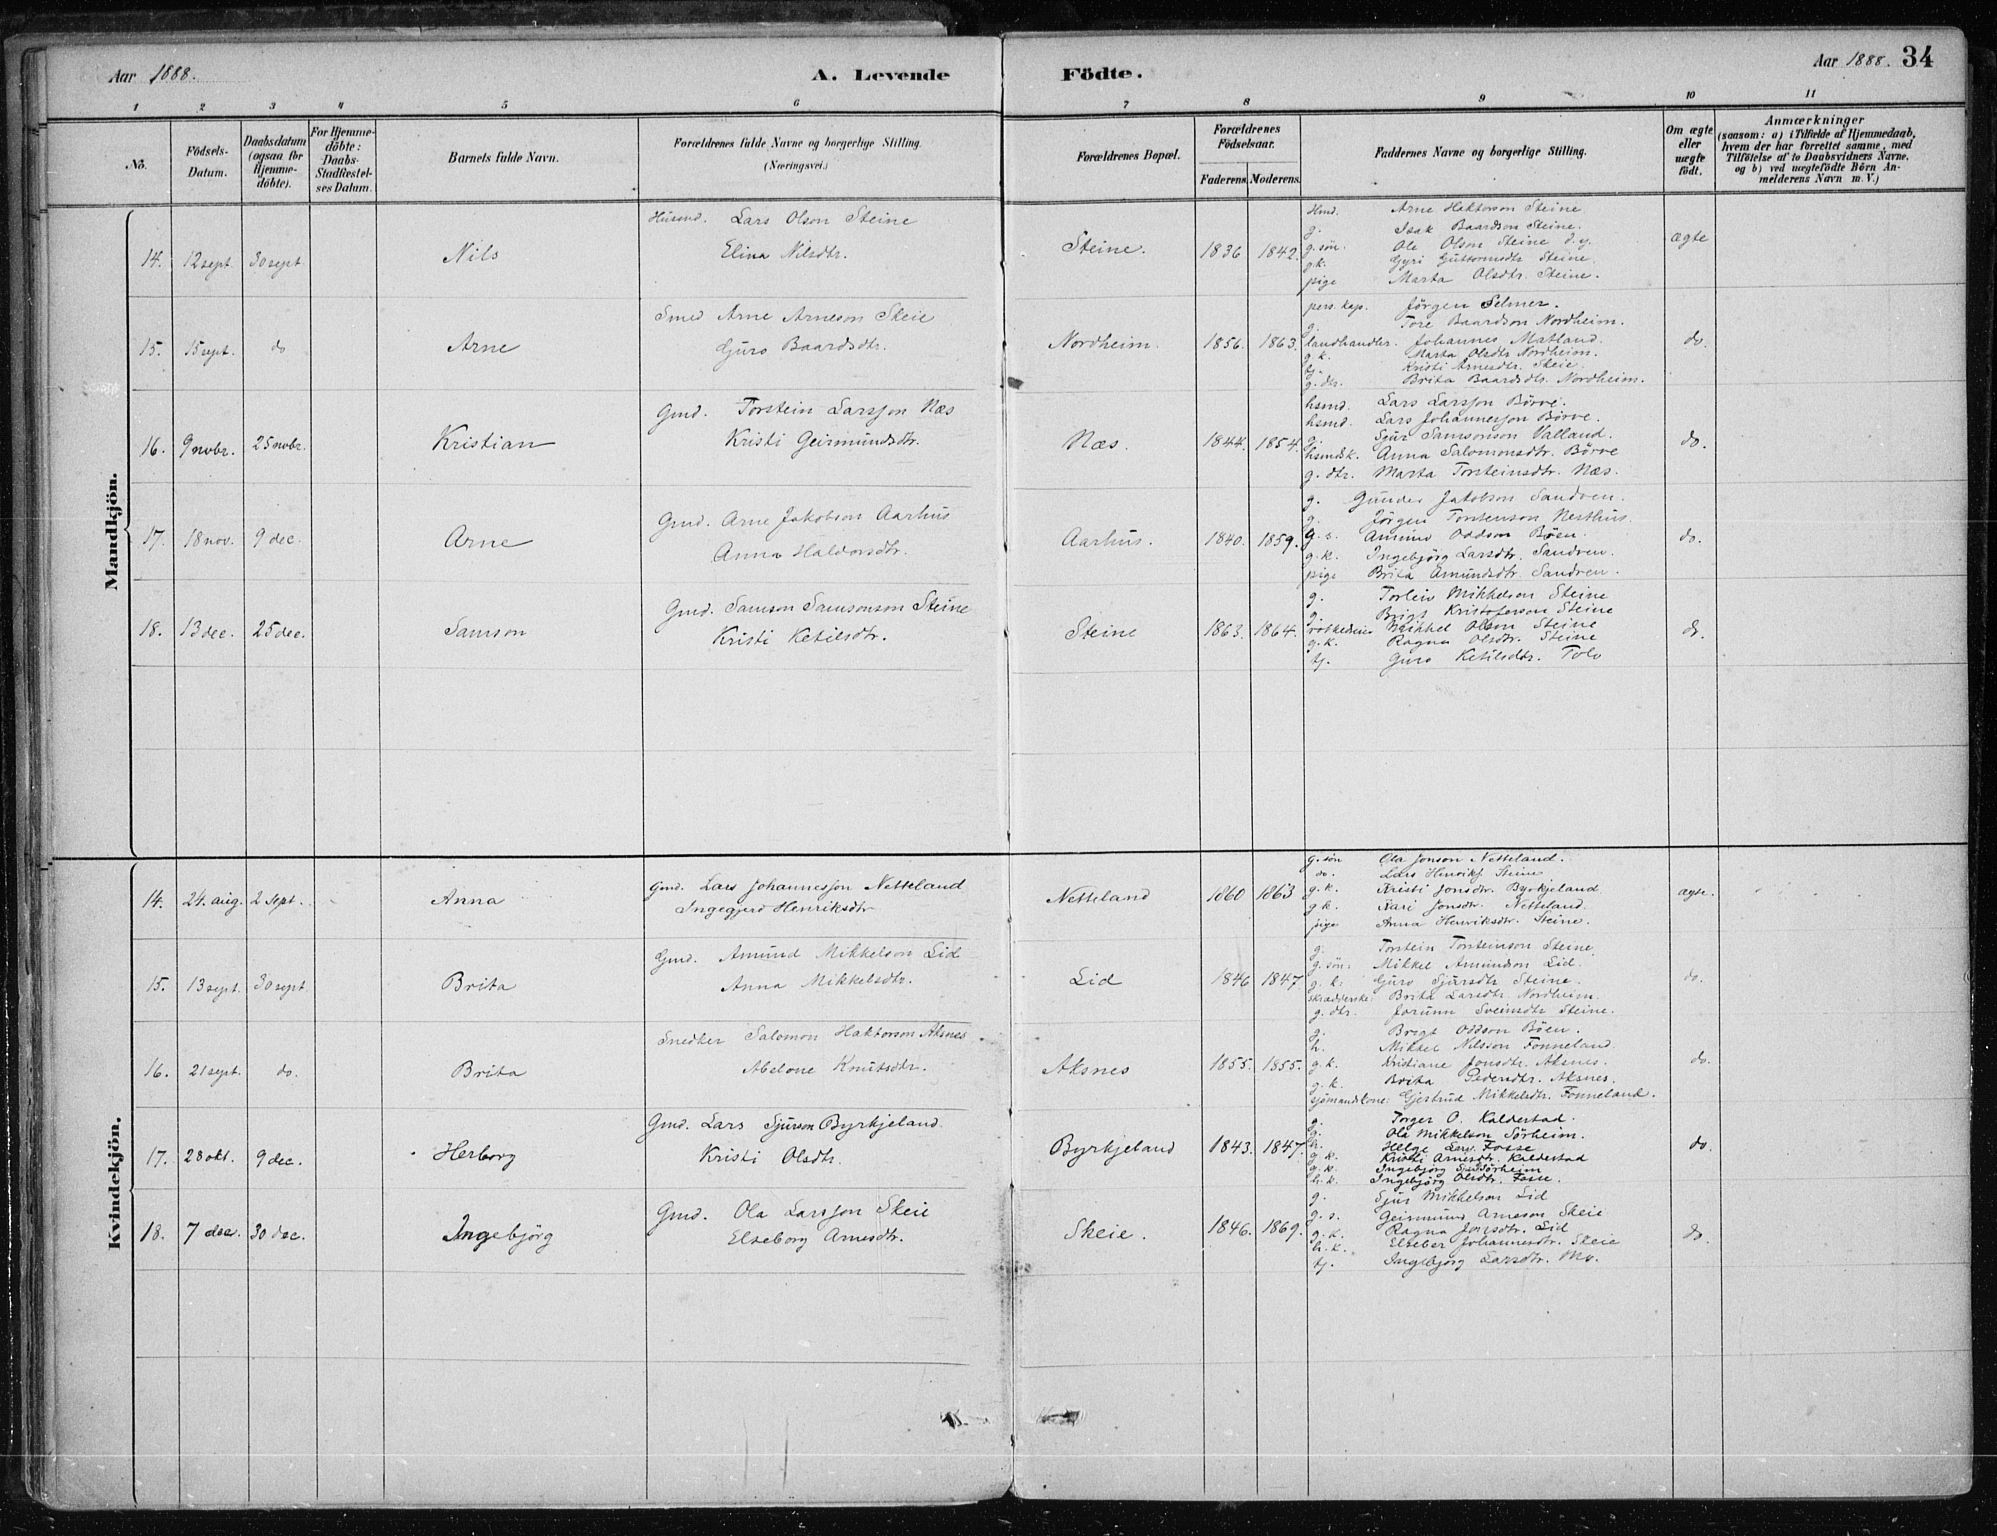 Aar 1888.
A. Levende
Födte.
Aar 1888.
34
1 2 3 4 5 6 7 8 9 10 11
No.
Födsels-Datum.
Daabsdatum (ogsaa for Hjemmedöbte).
For Hjemmedöbte: Daabs-Stadfæstelses Datum.
Barnets fulde Navn.
Forældrenes fulde Navne og borgerlige Stilling.
(Næringsvei.)
Forældrenes Bopæl.
Forældrenes Födselsaar.
Faderens. Moderens.
Faddernes Navne og borgerlige Stilling.
Om ægte eller uægte födt.
Anmærkninger
(saasom: a) i Tilfælde af Hjemmedaab, hvem der har forrettet samme, med Tilföielse af to Daabsvidners Navne, og b) ved uægtefödte Börn Anmelderens Navn m. V.)
Mandkjön.
14. 12 sept. 30 sept. Nils
Husmd. Lars Olson Steine
Elina Nilsdtr.
Steine. 1836 1842.
Hmd. Arne Haktorson Steine
g. Isak Baardson Steine.
g. sön. Ole Olson Steine d.y.
g.k. Gyri Guttormsdtr Steine.
pige Marta Olsdtr. Steine.
ægte
15. 15 sept. do Arne
Smed Arne Arneson Skeie
Guro Baardsdtr.
Nordheim. 1856. 1863.
pers. kap. Jörgen Selmer.
g. Tore Baardson Nordheim.
landhandler. Johannes Matland.
g.k. Marta Olsdtr Nordheim.
tj. Kristi Arnesdtr. Skeie.
g. dtr. Brita Baardsdtr. Nordheim.
do.
16. 9 novbr. 25 novbr. Kristian
Gmd. Torstein Larsson Næs
Kristi Geirmundsdtr.
Næs. 1844. 1854.
hsmd. Lars Larsson Börve.
hsmd. Lars Johannesson Börve.
g. Sjur Samsonson Valland.
hsmdsk. Anna Salomonsdtr. Börve
g. dtr. Marta Torsteinsdtr. Næs.
do.
17. 18 nov. 9 dec. Arne
Gmd. Arne Jakobson Aarhus
Anna Haldorsdtr.
Aarhus. 1840. 1859.
g. Gunder Jakobson Sandven.
g. Jörgen Torstenson Nesthus.
g. s. Amund Oddson Böen.
g.k. Ingebjörg Larsdtr. Sandven.
pige Brita Amundsdtr. Sandven.
do.
18. 13 dec. 25 dec. Samson
Gmd. Samson Samsonson Steine
Kristi Ketilsdtr.
Steine 1863. 1864.
g. Torleiv Mikkelson Steine
g. Brigt Kristoferson Steine
Mikkel Olson Steine
g.k. Ragna Olsdtr. Steine
tj. Guro Ketilsdtr. Tolo
do.
Kvindekjön.
14. 24. aug. 2 sept. Anna
Gmd. Lars Johannesson Netteland
Ingegjerd Henriksdtr
Netteland 1860 1863
g. sön Ola Jonson Netteland.
do. Lars Henriks. Steine
g.k. Kristi Jonsdtr. Byrkjeland
g.k. Kari Jonsdtr. Netteland.
pige Anna Henriksdtr. Steine.
ægte.
15. 13 sept. 30 sept. Brita
Gmd. Amund Mikkelson Lid
Anna Mikkelsdtr.
Lid 1846 1847
g. Torstein Torsteinson Steine
g. sön: Mikkel Amundson Lid.
g. k. Guro Sjursdtr Steine.
skrædderske: Brita Larsdtr Nordheim.
g. dtr. Jorunn Sveinsdtr Steine.
do.
16. 21 sept. do. Brita
Snedker Salomon Haktorson Aksnes
Abelone Knutsdtr.
Aksnes 1855. 1855.
g. Brigt Oddson Böen.
h. Mikkel Nilsson Fonneland
g.k. Kristiane Jonsdtr. Aksnes.
g.k. Brita Pedersdtr. Aksnes.
sjömandkone: Gjertrud Mikkelsdtr. Fonneland.
do.
17. 28 okt. 9 dec. Herborg
Gmd. Lars Sjurson Byrkjeland.
Kristi Olsdtr.
Byrkjeland 1843. 1847.
g. Torger O. Kaldestad.
g. Ola Mikkelson Sörheim.
h. Helge Lars. Fosse
g.k. Kristi Arnesdtr. Kaldestad
g.k. Ingebjörg Sjursd Sörheim
h.k. Ingebjörg Olsdtr. Fosse.
do.
18. 7 dec. 30 dec. Ingebjörg
Gmd. Ola Larsson Skeie
Elseborg Arnesdtr.
Skeie. 1846. 1869.
g. Sjur Mikkelson Lid
g. s. Geirmund Arneson Skeie
g.k. Ragna Jonsdtr. Lid
h.k. Elseber Johannesdtr. Skeie
tj. Ingebjörg Larsdtr. Mo.
do.